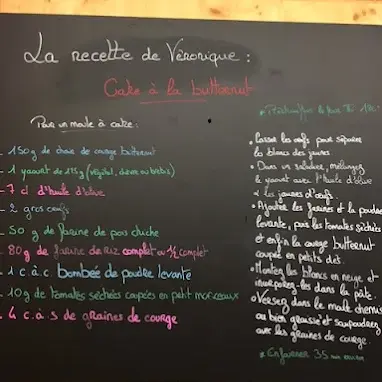 La recette de Véronique :
Cake à la butternut
Pour un moule à cake :
- 150 g de chair de courge butternut
- 1 yaourt de 125 g (végétal, chèvre ou brebis)
- 7 cl d'huile d'olive
- 2 gros oeufs
- 50 g de farine de pois chiche
- 80 g de farine de riz complet ou 1/2 complet
- 1 c.à.c bombée de poudre levante
- 10 g de tomates séchées coupées en petit morceaux
- 4 c.à.s de graines de courge
• Préchauffer le four
• Casser les oeufs pour séparer
les blancs des jaunes.
• Dans un saladier, mélangez
le yaourt avec l'huile d'olive
& les jaunes d'oeufs.
• Ajoutez les farines et la poudre
levante, puis les tomates séchées
et enfin la courge butternut
coupée en petits dés.
• Montez les blancs en neige et
incorporez-les dans la pâte.
• Versez dans le moule chemisé
ou bien graissé et saupoudrez
avec les graines de courge.
• Enfourner 35 min environ